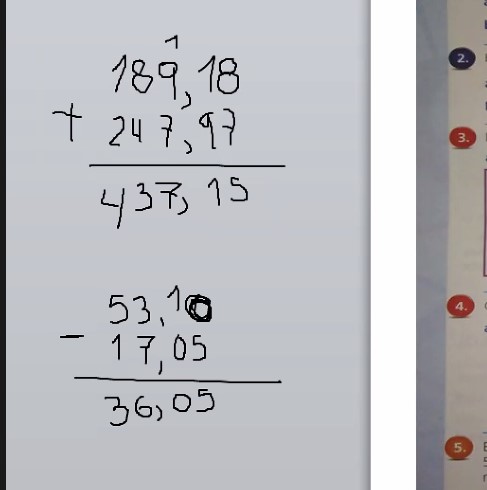 1
189,18
+ 247,97
437,15
53,10
- 17,05
36,05
2.
3.
4.
5.